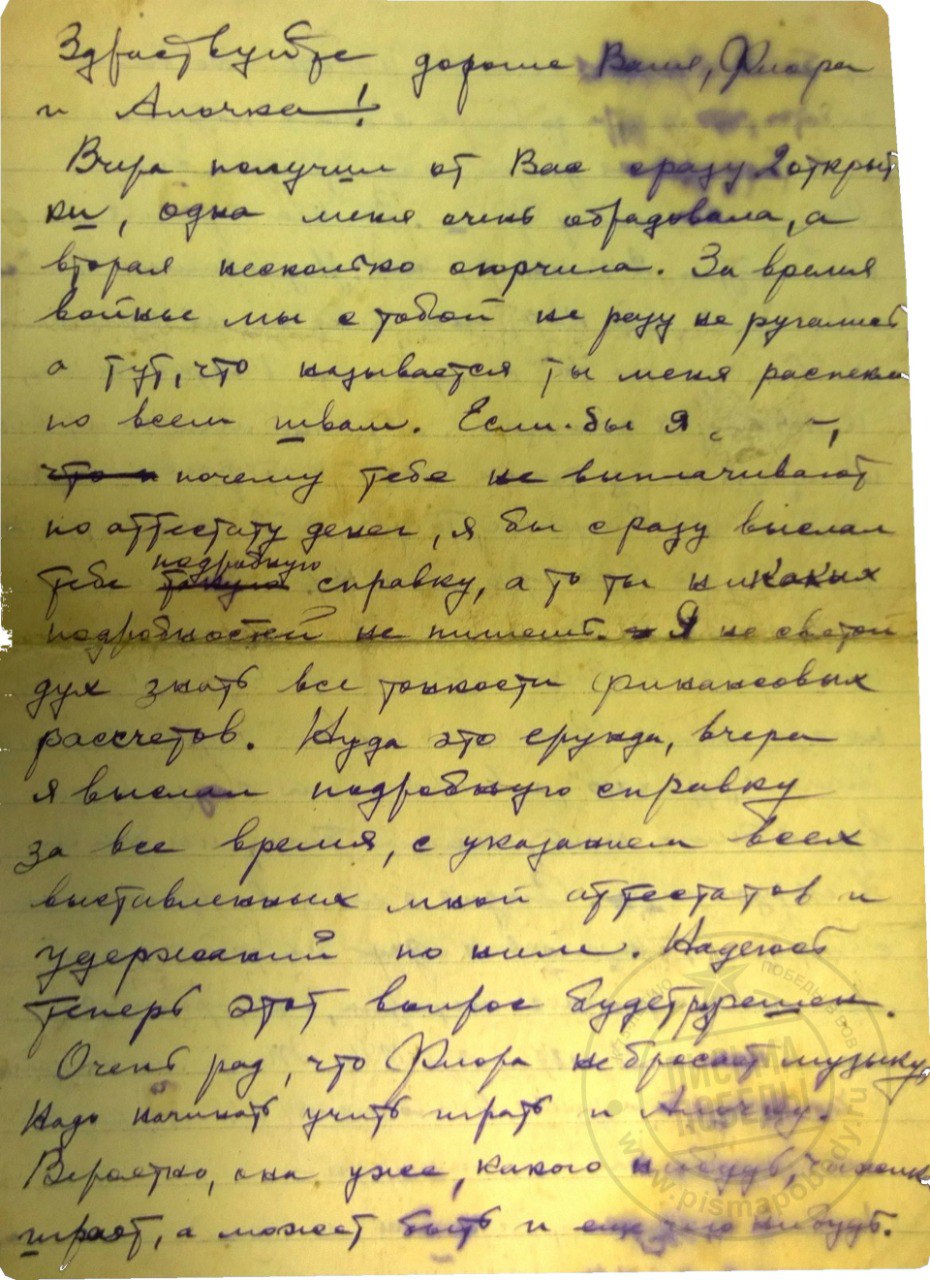 Здраствуйте дорогие Валя, Флора
и Алочка!
Вчера получил от Вас сразу 2 открыт
ки, одна меня очень обрадовала, а
вторая несколько огорчила. За время
войны мы с тобой не разу не ругались
а тут, что называется ты меня распекла
по всем швам. Если-бы я
почему тебе не выплачивают
по аттестату денег, я бы сразу выслал
тебе подробную справку, а то ты никаких
подробностей не пишешь. Я не святой
дух знать все тонкости финансовых
рассчетов. Нуда это ерунда, вчера
я выслал подробную справку
за все время, с указанием всех
выставленных мной аттестатов и
удержаний по ним. Надеюсь
теперь этот вопрос будет решен.
Очень рад, что Флора не бросает музыку,
Надо начинать учить играть и Алочку.
Вероятно, она уже, какого нибудь,
играет, а может быть и еще чего нибудь.
ПИСЬМА
ПОБЕДЫ
www.pismapobedy.ru